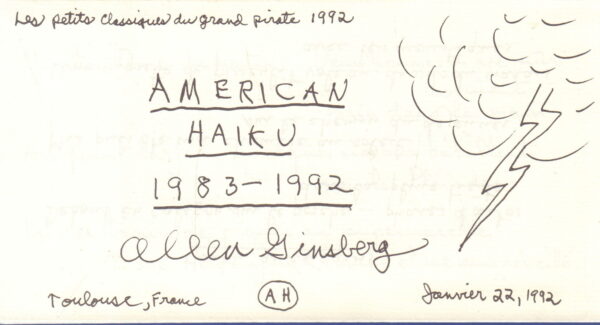 Les petits classiques du grand pirate 1992
AMERICAN
HAIKU
1983-1992
Allen Ginsberg
Toulouse, France
AH
Janvier 22, 1992